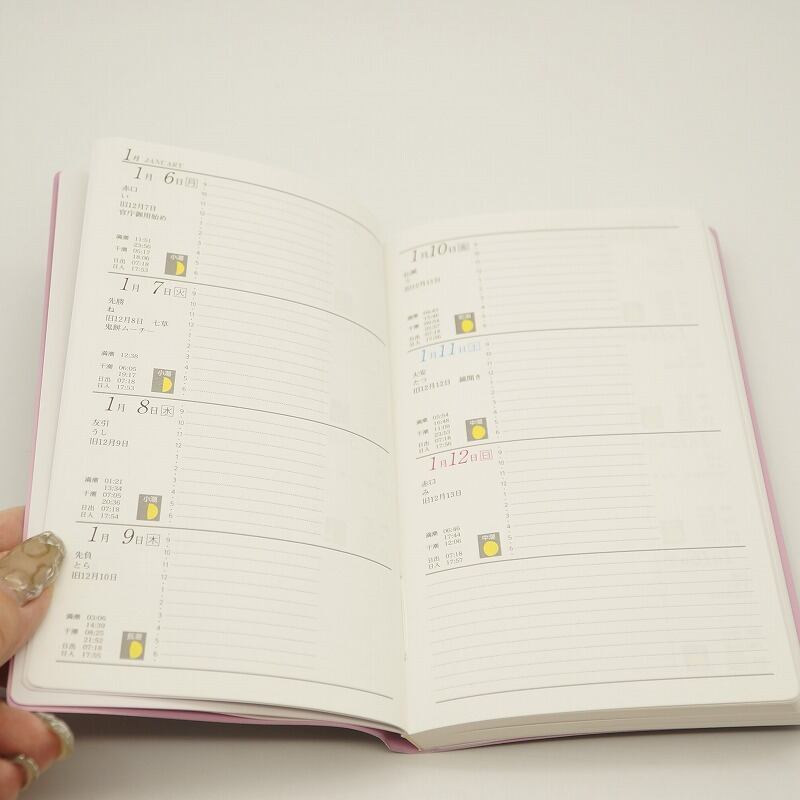 1月 JANUARY
1月 6日 月
赤口
い
旧12月7日
官庁御用始め
満潮 11:51
23:56
干潮 05:17
18:06
日出 07:18
日入 17:53
小潮
1月 7日 火
先勝
ね
旧12月8日 七草
鬼餅ムーチー
満潮 12:38
干潮 06:05
19:17
日出 07:18
日入 17:53
小潮
1月 8日 水
友引
うし
旧12月9日
満潮 01:21
13:34
干潮 07:05
20:36
日出 07:18
日入 17:54
小潮
1月 9日 木
先負
とら
旧12月10日
満潮 03:06
14:39
干潮 08:25
21:52
日出 07:18
日入 17:55
長潮
1月10日 金
仏滅
旧12月11日
満潮
干潮
日出 07:18
日入 17:56
若潮
1月11日 土
大安
たつ
旧12月12日 鏡開き
満潮 05:54
16:48
干潮 11:08
23:53
日出 07:18
日入 17:56
中潮
1月12日 日
赤口
み
旧12月13日
満潮 06:46
17:44
干潮 12:06
日出 07:18
日入 17:57
中潮